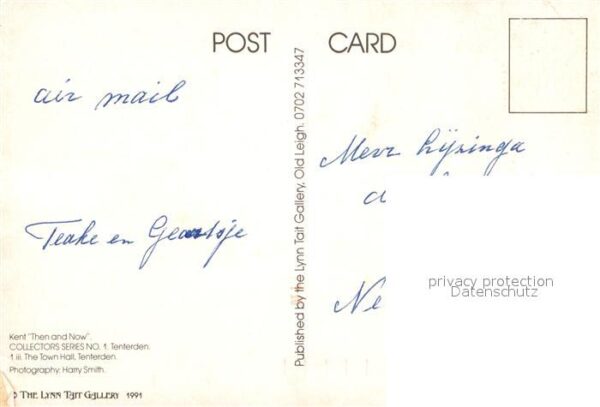 POST CARD
air mail
Teake en Geartsje
Kent "Then and Now".
COLLECTORS SERIES NO. 1. Tenterden.
1 iii. The Town Hall, Tenterden.
Photography: Harry Smith.
© THE LYNN TAIT GALLERY 1991
Published by the Lynn Tait Gallery, Old Leigh. 0702 713347
Mevr
Ne
privacy protection
Datenschutz